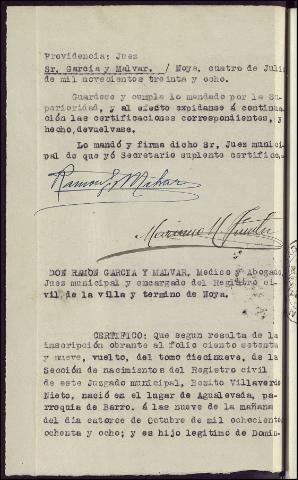 Providencia: Juez
Sr. Garcia y Malvar. / Noya, cuatro de Juli
de mil novecientos treinta y ocho.
Guardese y cumpla lo mandado por la Su-
perioridad, y al efecto expidanse á continua
ción las certificaciones correspondientes, y
hecho,devuelvase.
Lo mandó y firma dicho Sr, Juez munici
pal de que yó Secretario suplente certifico,
Ramon G y Malvar
DON RAMON GARCIA Y MALVAR, Medico y Abogado,
Juez municipal y encargado del Registro ci-
vil de la villa y termino de Noya.
CERTIFICO: que segun resulta de la
inscripción obrante al folio ciento setenta
y nueve, vuelto, del tomo diecinueve, de la
Sección de nacimientos del Registro civil
de este Juzgado municipal, Benito Villaverde
Nieto, nació en el lugar de Agualevada, pa-
rroquia de Barro. á las nueve de la mañana
del dia catorce de Octubre de mil ochociento
ochenta y ocho; y es hijo legitimo de Domin-